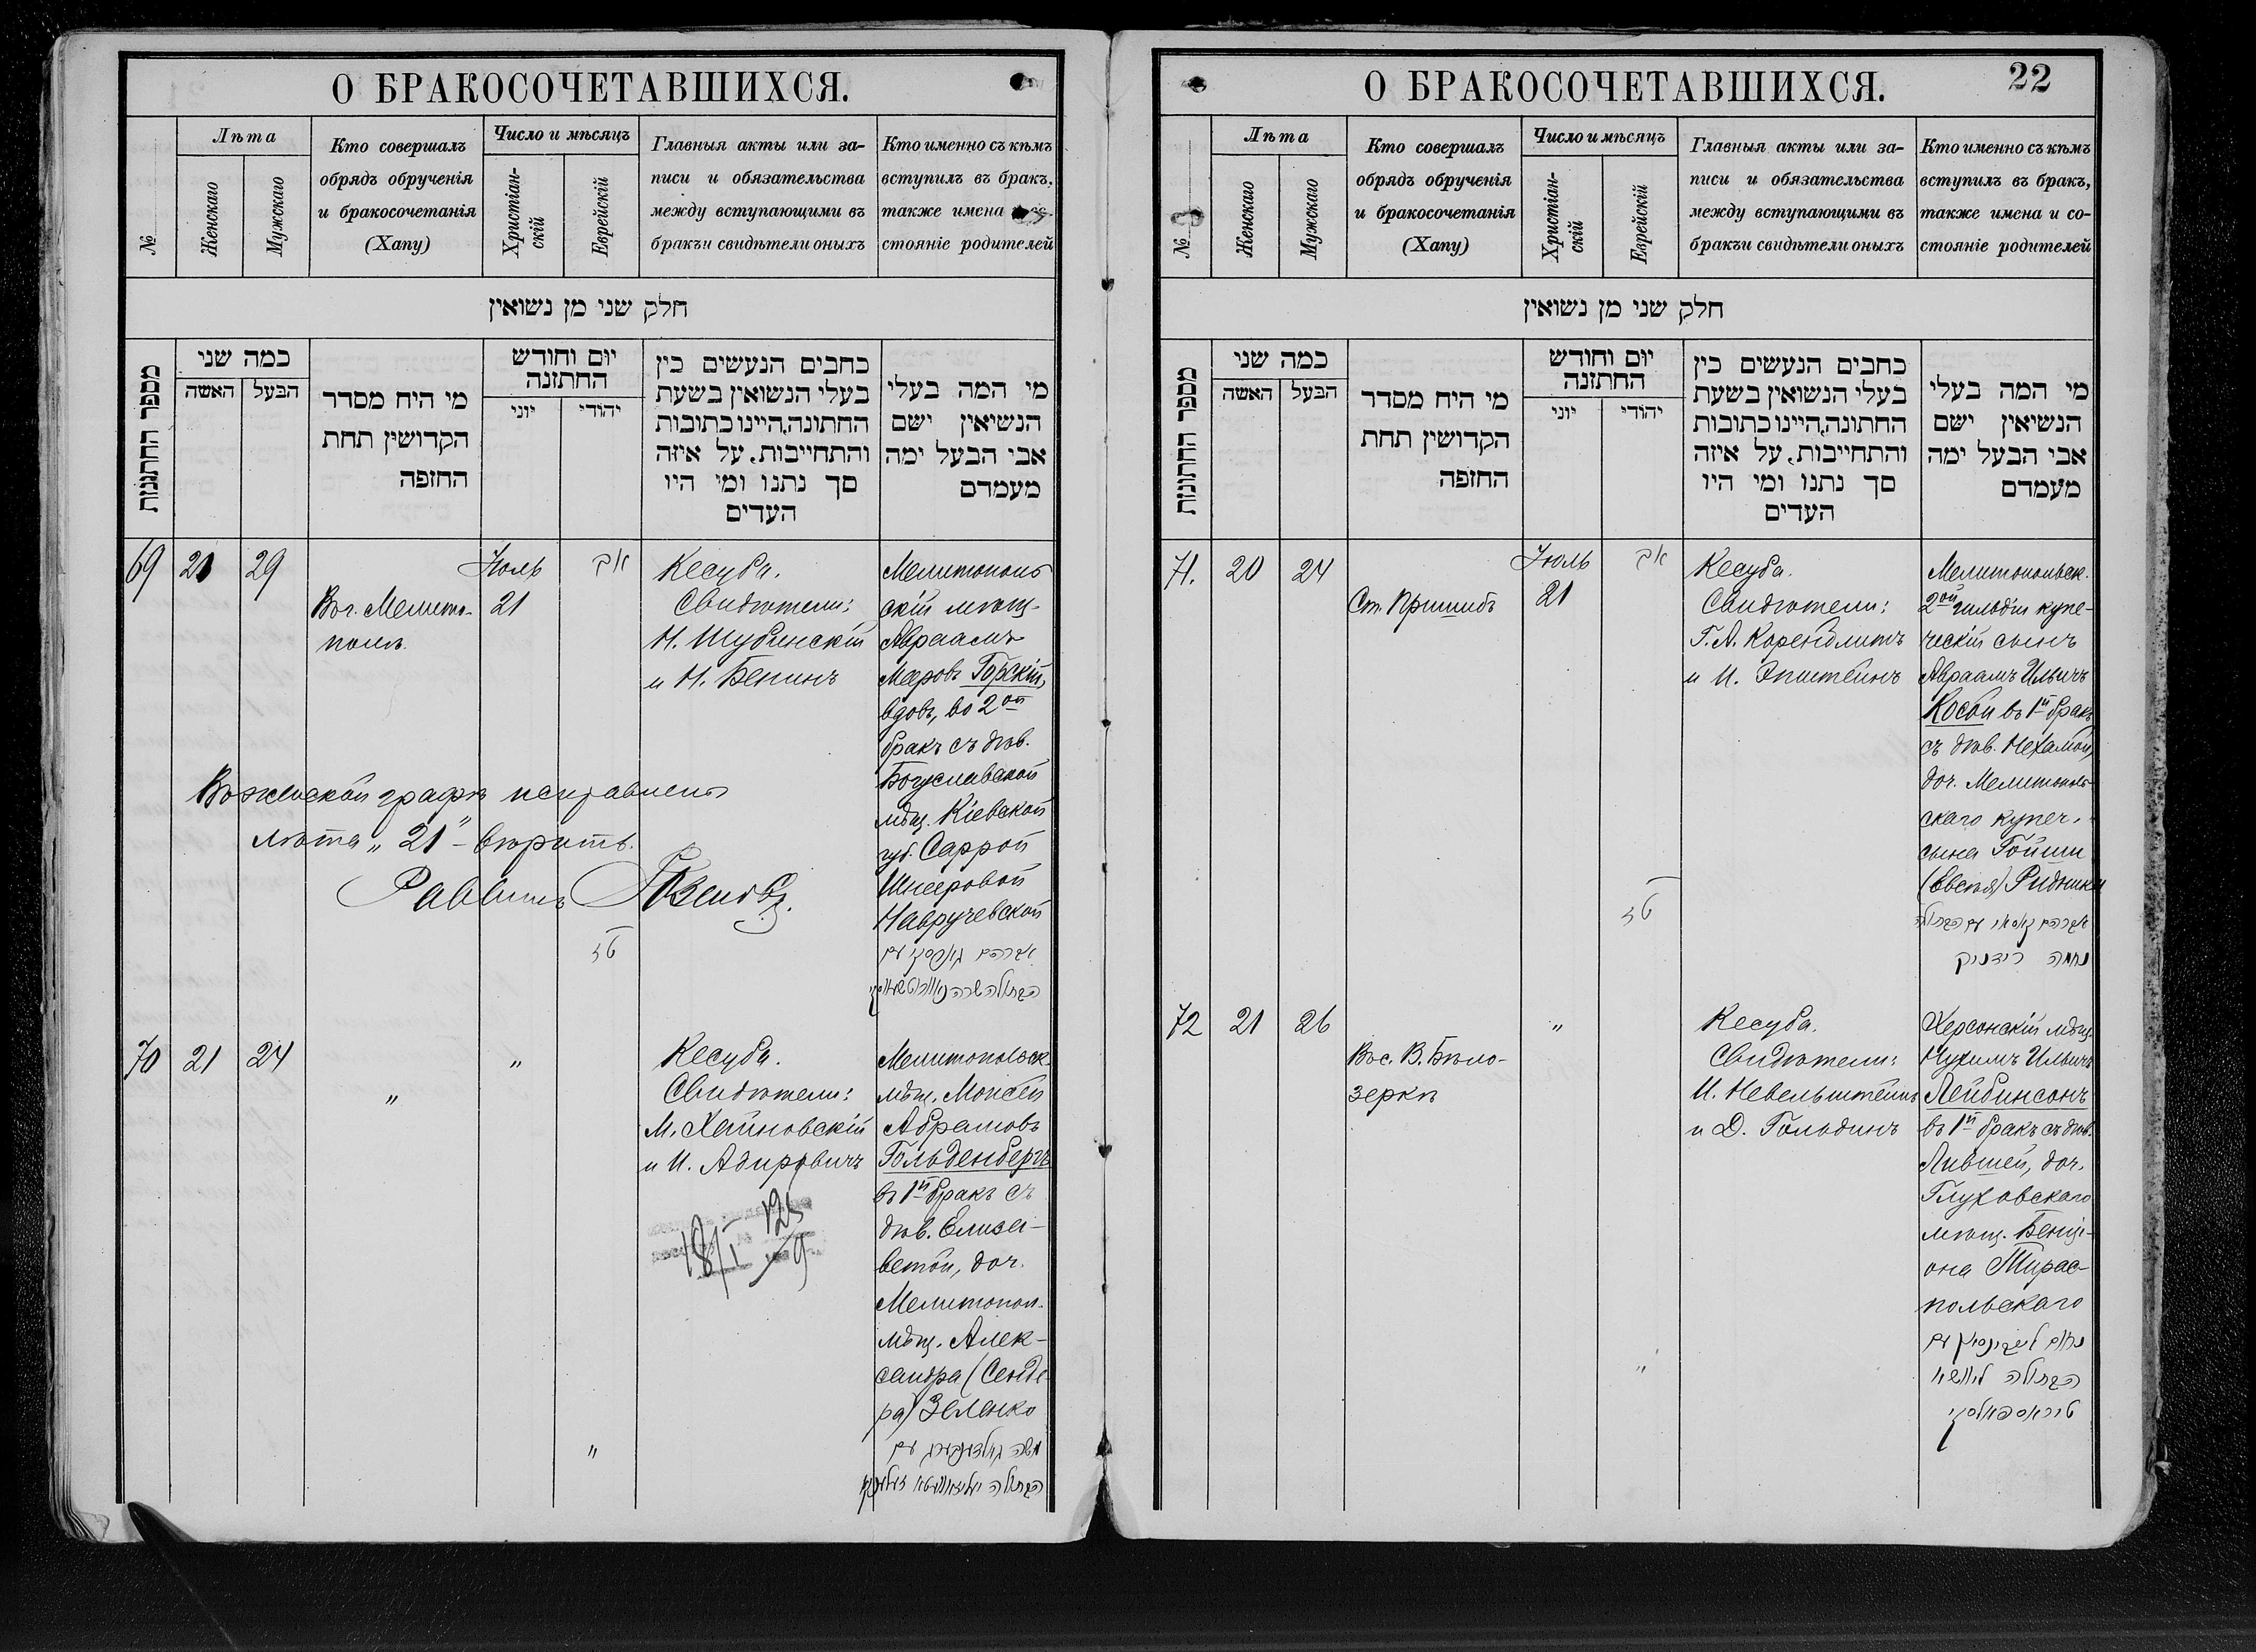 О БРАКОСОЧЕТАВШИХСЯ.
№
Лѣта
Женскаго
Мужскаго
Кто совершалъ
обрядъ обрученія
и бракосочетанія
(Хапу)
Число и мѣсяцъ
Христіан-
скій
Еврейскій
Главныя акты или за-
писи и обязательства
между вступающими въ
бракъи свидѣтели оныхъ
Кто именно съ кѣмъ
вступилъ въ бракъ,
также имена
стояніе родителей
חלק שני מן נשואין
מספר החתונות
כמה שני
האשה
הבעל
מי היח מסדר
הקדושין תחת
החופה
יום וחודש
החתונה
יוני
יהודי
כחבים הנעשים כין
בעלי הנשואין בשעת
החתונה,היינו כתובות
והתחייבות, על איזה
סך נתנו ומי היו
העדים
מי המה בעלי
הנשיאין ישם
אבי הבעל ימה
מעמדם
69
21
29
Іюль
אב
Во г. Мелито-
полѣ
21
Кесуба.
Свидѣтели:
Н. Шубинскій
и Н. Бенинъ
Мелитополь
скій мѣщ.
Авраамъ
Меровъ Горскій,
вдов., во 2ой
бракъ съ дѣв.
Богуславской
мѣщ. Кіевской
губ. Саррой
Шнееровой
Навручевской
Въ женской графѣ исправлено
лѣта „21" – вѣрить.
Раввинъ
טז
אברהם גארסקי עם
70
21
24
„
„
Кесуба.
Свидѣтели:
М. Хайновскій
и И. Адировичъ
18/I
Мелитопольск.
мѣщ. Моисей
Абрамовъ
Гольденбергъ
въ 1й бракъ съ
дѣв. Елиза-
ветой, доч.
Мелитопол.
мѣщ. Алек-
сандра (Сенде-
ра) Зеленко
„
משה גאלדענבערג עם
О БРАКОСОЧЕТАВШИХСЯ.
22
№
Лѣта
Женскаго
Мужскаго
Кто совершалъ
обрядъ обрученія
и бракосочетанія
(Хапу)
Число и мѣсяцъ
Христіан-
скій
Еврейскій
Главныя акты или за-
писи и обязательства
между вступающими въ
бракъи свидѣтели оныхъ
Кто именно съ кѣмъ
вступилъ въ бракъ,
также имена и со-
стояніе родителей
חלק שני מן נשואין
מספר החתונות
כמה שני
האשה
הבעל
מי היח מסדר
הקדושין תחת
החופה
יום וחודש
החתונה
יוני
יהודי
כחבים הנעשים כין
בעלי הנשואין בשעת
החתונה,היינו כתובות
והתחייבות, על איזה
סך נתנו ומי היו
העדים
מי המה בעלי
הנשיאין ישם
אבי הבעל ימה
מעמדם
71.
20
24
Іюль
אב
Ст. Пришибъ
21
Кесуба.
Свидѣтели:
Г. А. Коренблитъ
и И. Эпштейнъ
Мелитопольск.
2ой гильдіи купе-
ческій сынъ
Авраамъ Ильичъ
Косой въ 1й бракъ
съ дѣв. Нехамой,
доч. Мелитополь-
скаго купеч.
сына Гойши
(Евсѣя) Ридника
טז
נחמה רידניק
72
21
26
Въ с. В. Бѣло-
зеркѣ
„
Кесуба.
Свидѣтели:
И. Невельштейнъ
и Д. Гольдинъ
Херсонскій мѣщ.
Нухимъ Ильичъ
Лейбинсонъ
въ 1й бракъ съ дѣв.
Лившей, доч.
Глуховскаго
мѣщ. Бенці-
она Тирас-
польскаго
„
נחום לייבינסאן עם
הבתולה ליוושא
טיראספאלסקי